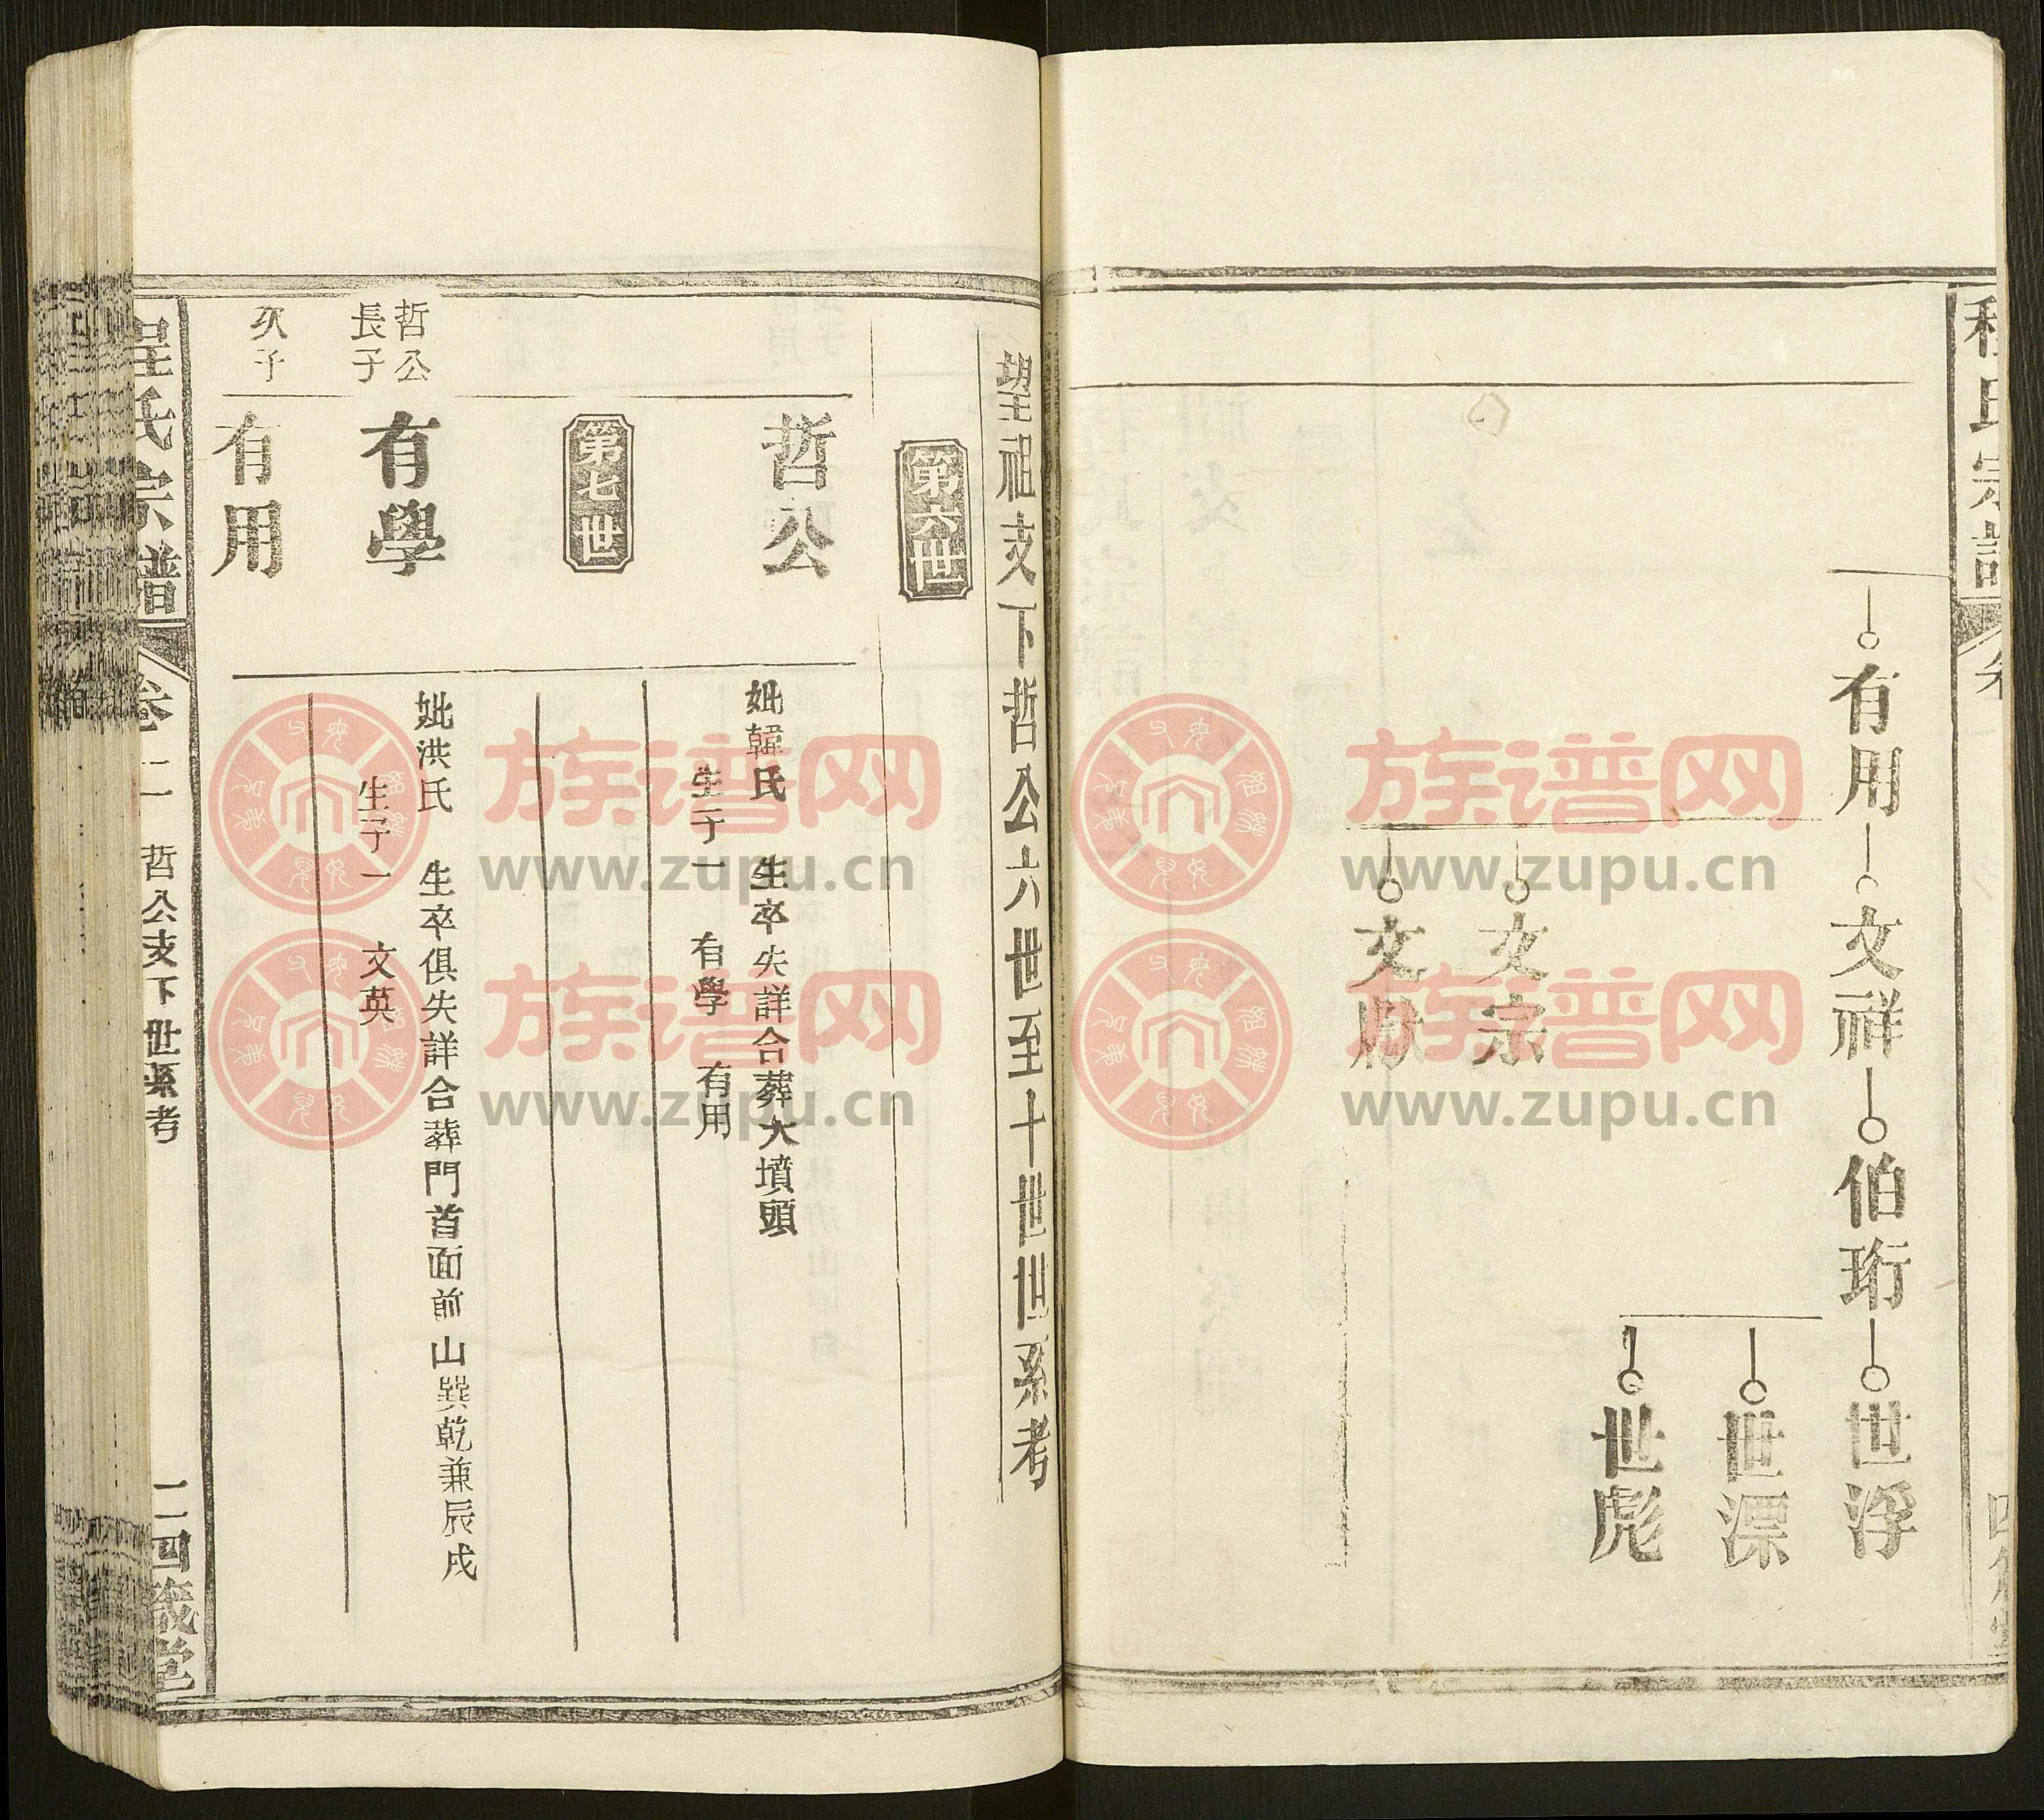 程氏宗譜
有用
文祥
伯珩
世浮
世漂
世彪
文宗
文猷
望祖支下哲公六世至十世世系考
第六世
哲公
妣韓氏 生卒失詳合葬大墳頭
生子一 有學 有用
第七世
哲公
長子
有學
妣洪氏 生卒俱失詳合葬門首面前山巽乾兼辰戌
生子一 文英
次子
有用
程氏宗譜 卷二 哲公支下世系考 二 四箴堂
族谱网
www.zupu.cn
族谱网
www.zupu.cn
族谱网
www.zupu.cn
族谱网
www.zupu.cn